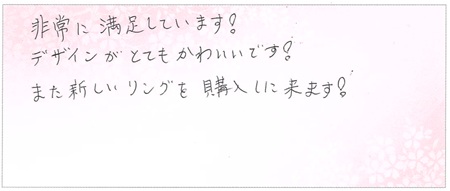 非常に満足しています!
デザインがとてもかわいいです!
また新しいリングを購入しに来ます!